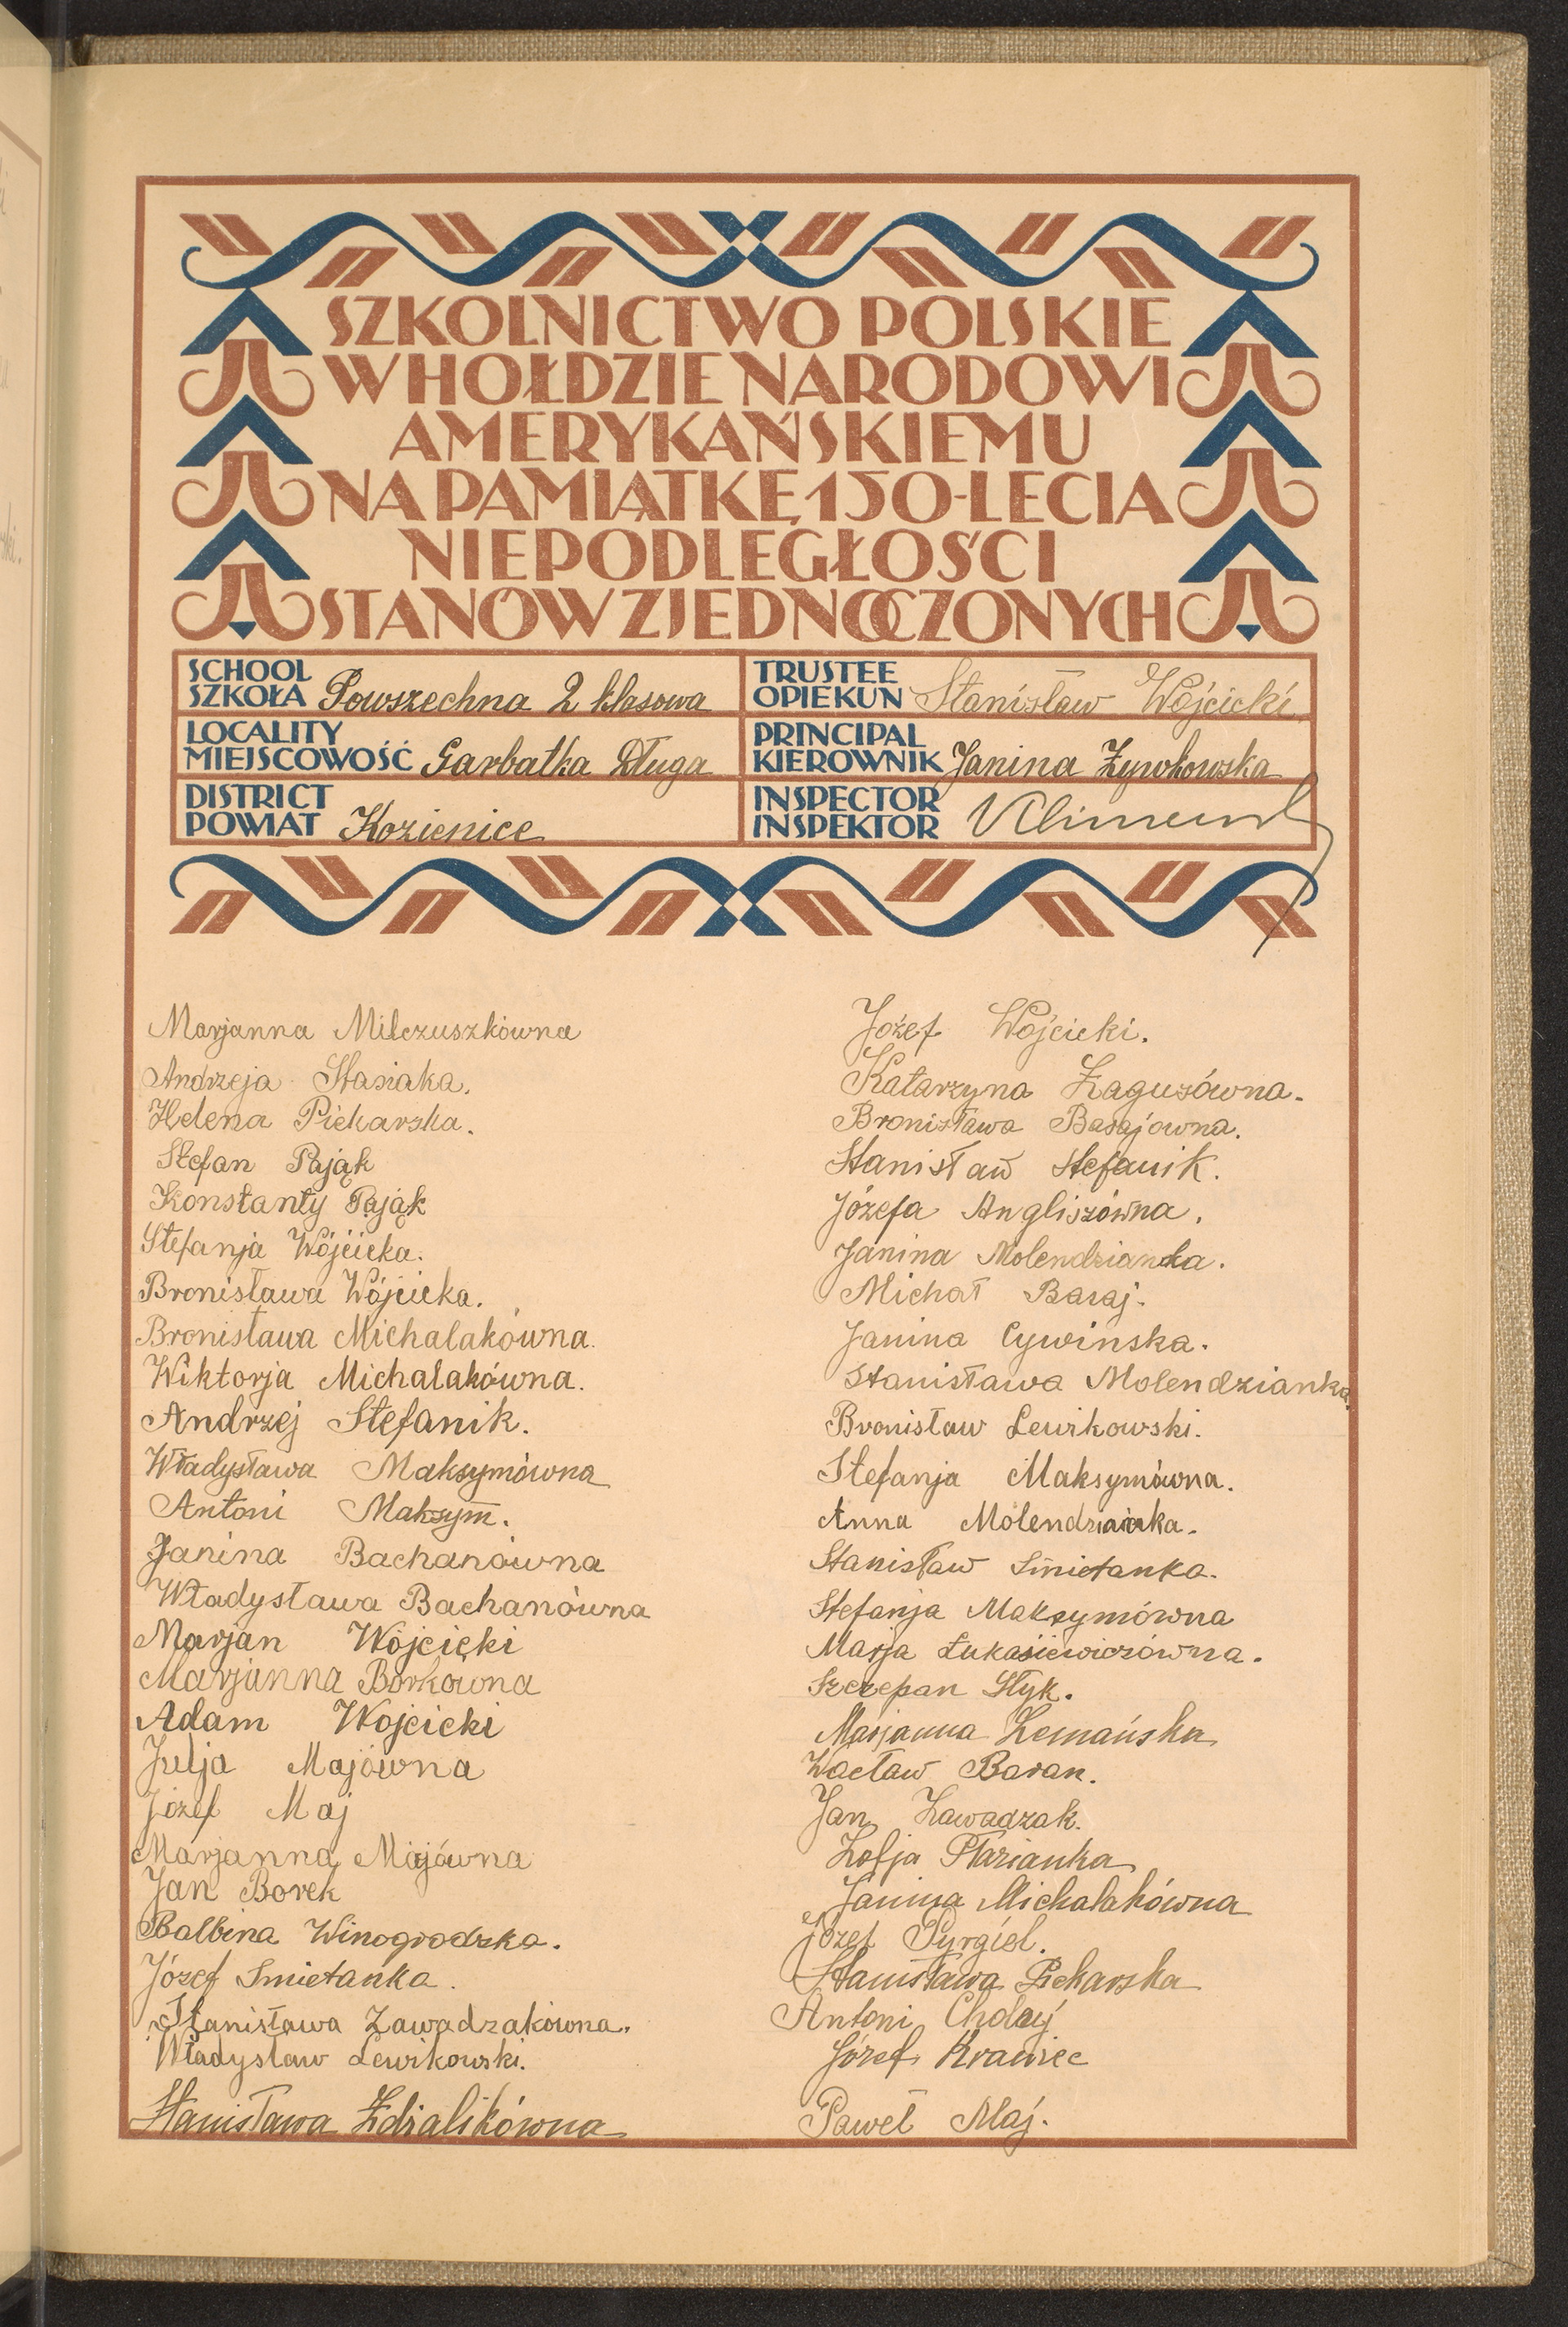 SZKOLNICTWO POLSKIE
W HOŁDZIE NARODOWI
AMERYKAŃSKIEMU
NA PAMIĄTKĘ 150-LECIA
NIEPODLEGŁOŚCI
STANÓW ZJEDNOCZONYCH
SCHOOL
SZKOŁA Powszechna 2 klasowa
LOCALITY
MIEJSCOWOŚĆ Garbatka Długa
DISTRICT
POWIAT Kozienice
TRUSTEE
OPIEKUN Stanisław Wójcicki
PRINCIPAL
KIEROWNIK Janina Żywkowska
INSPECTOR
INSPEKTOR
Marjanna Milczuszkówna
Andrzeja Stasiaka.
Helena Piekarska.
Stefan Pająk
Konstanty Pająk
Stefanja Wójcicka.
Bronisława Wójcicka.
Bronisława Michalakówna.
Wiktorja Michalakówna.
Andrzej Stefanik.
Władysława Maksymówna
Antoni Maksym.
Janina Bachanówna
Władysława Bachanówna
Marjan Wójcicki
Marjanna Borkówna
Adam Wójcicki
Julja Majówna
Józef Maj
Marjanna Majówna
Jan Borek
Balbina Winogrodzka.
Józef Smietanka.
Stanisława Zawadzakówna.
Władysław Lewikowski.
Stanisława Ździalikówna
Józef Wójcicki.
Katarzyna Żagusówna.
Bronisława Basajówna.
Stanisław Stefanik.
Józefa Angliszówna.
Janina Molendzianka.
Michał Basaj.
Janina Cywinska.
Stanisława Molendzianka.
Bronisław Lewikowski.
Stefanja Maksymówna.
Anna Molendzianka.
Stanisław Smietanka.
Stefanja Maksymówna
Marja Łukasiewiczówna.
Szczepan Styk.
Marjanna Zemańska
Wacław Baran.
Jan Zawadzak.
Zofja Ptasianka
Janina Michalakówna
Józef Pyrgiel.
Stanisława Piekarska
Antoni Cholaj
Józef Krawiec
Paweł Maj.